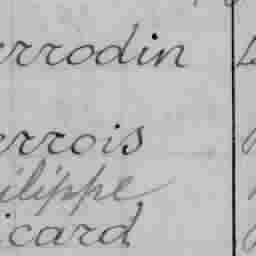 errodin
errois
ilippe
icard